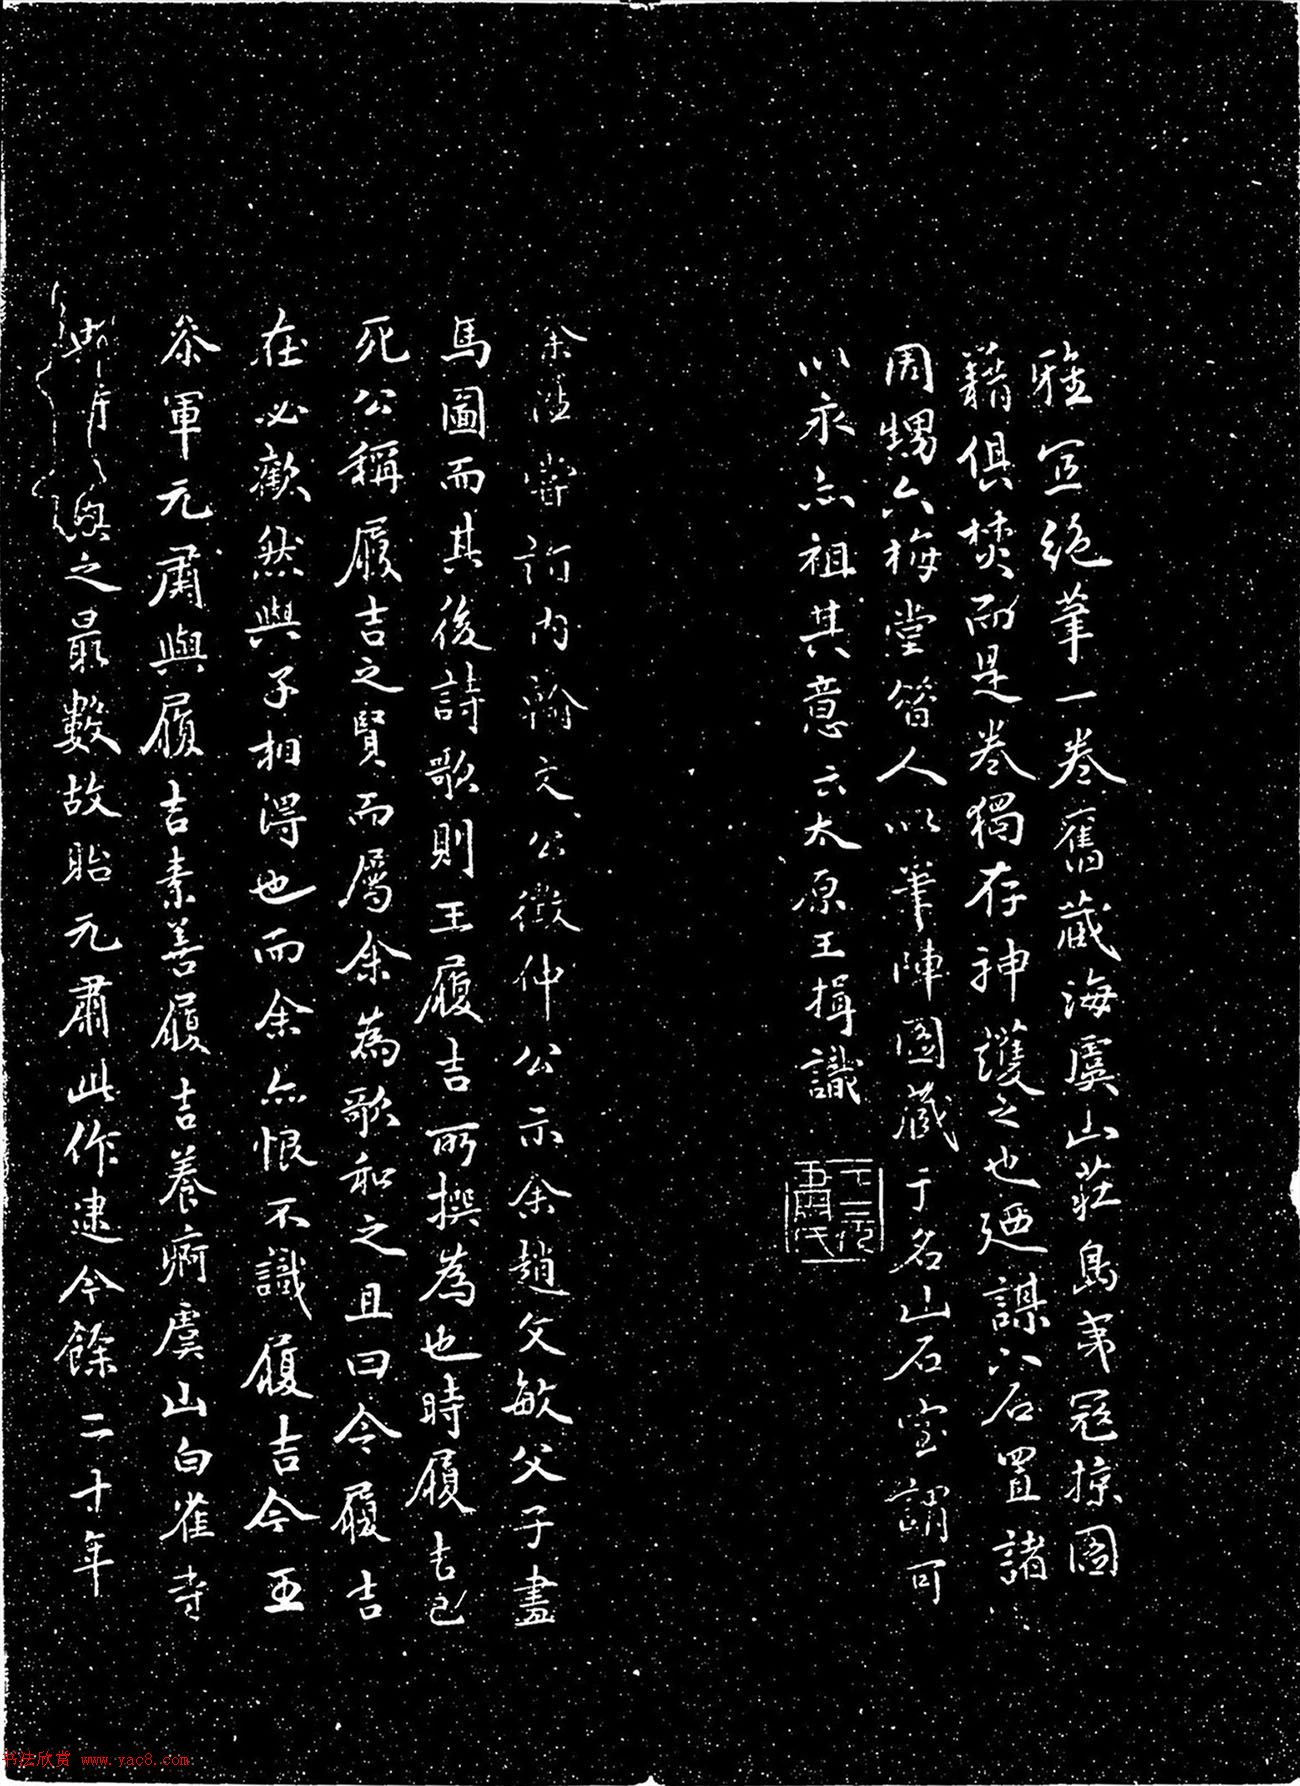 雅宜絕筆一卷舊藏海虞山莊島夷寇掠圖
籍俱焚而是卷獨存神護之也廼謀入石置諸
周甥六梅堂昔人以筆陣圖藏于名山石室謂可
以永亦祖其意云太原王揖識
余往嘗訪內翰文公徵仲公示余趙文敏父子畫
馬圖而其後詩歌則王履吉所撰為也時履吉已
死公稱履吉之賢而屬余為歌和之且曰令履吉
在必歡然與子相得也而余亦恨不識履吉今王
參軍元肅與履吉素善履吉養痾虞山白雀寺
之最數故貽元肅此作逮今餘二十年
书法欣赏 www.yac8.com